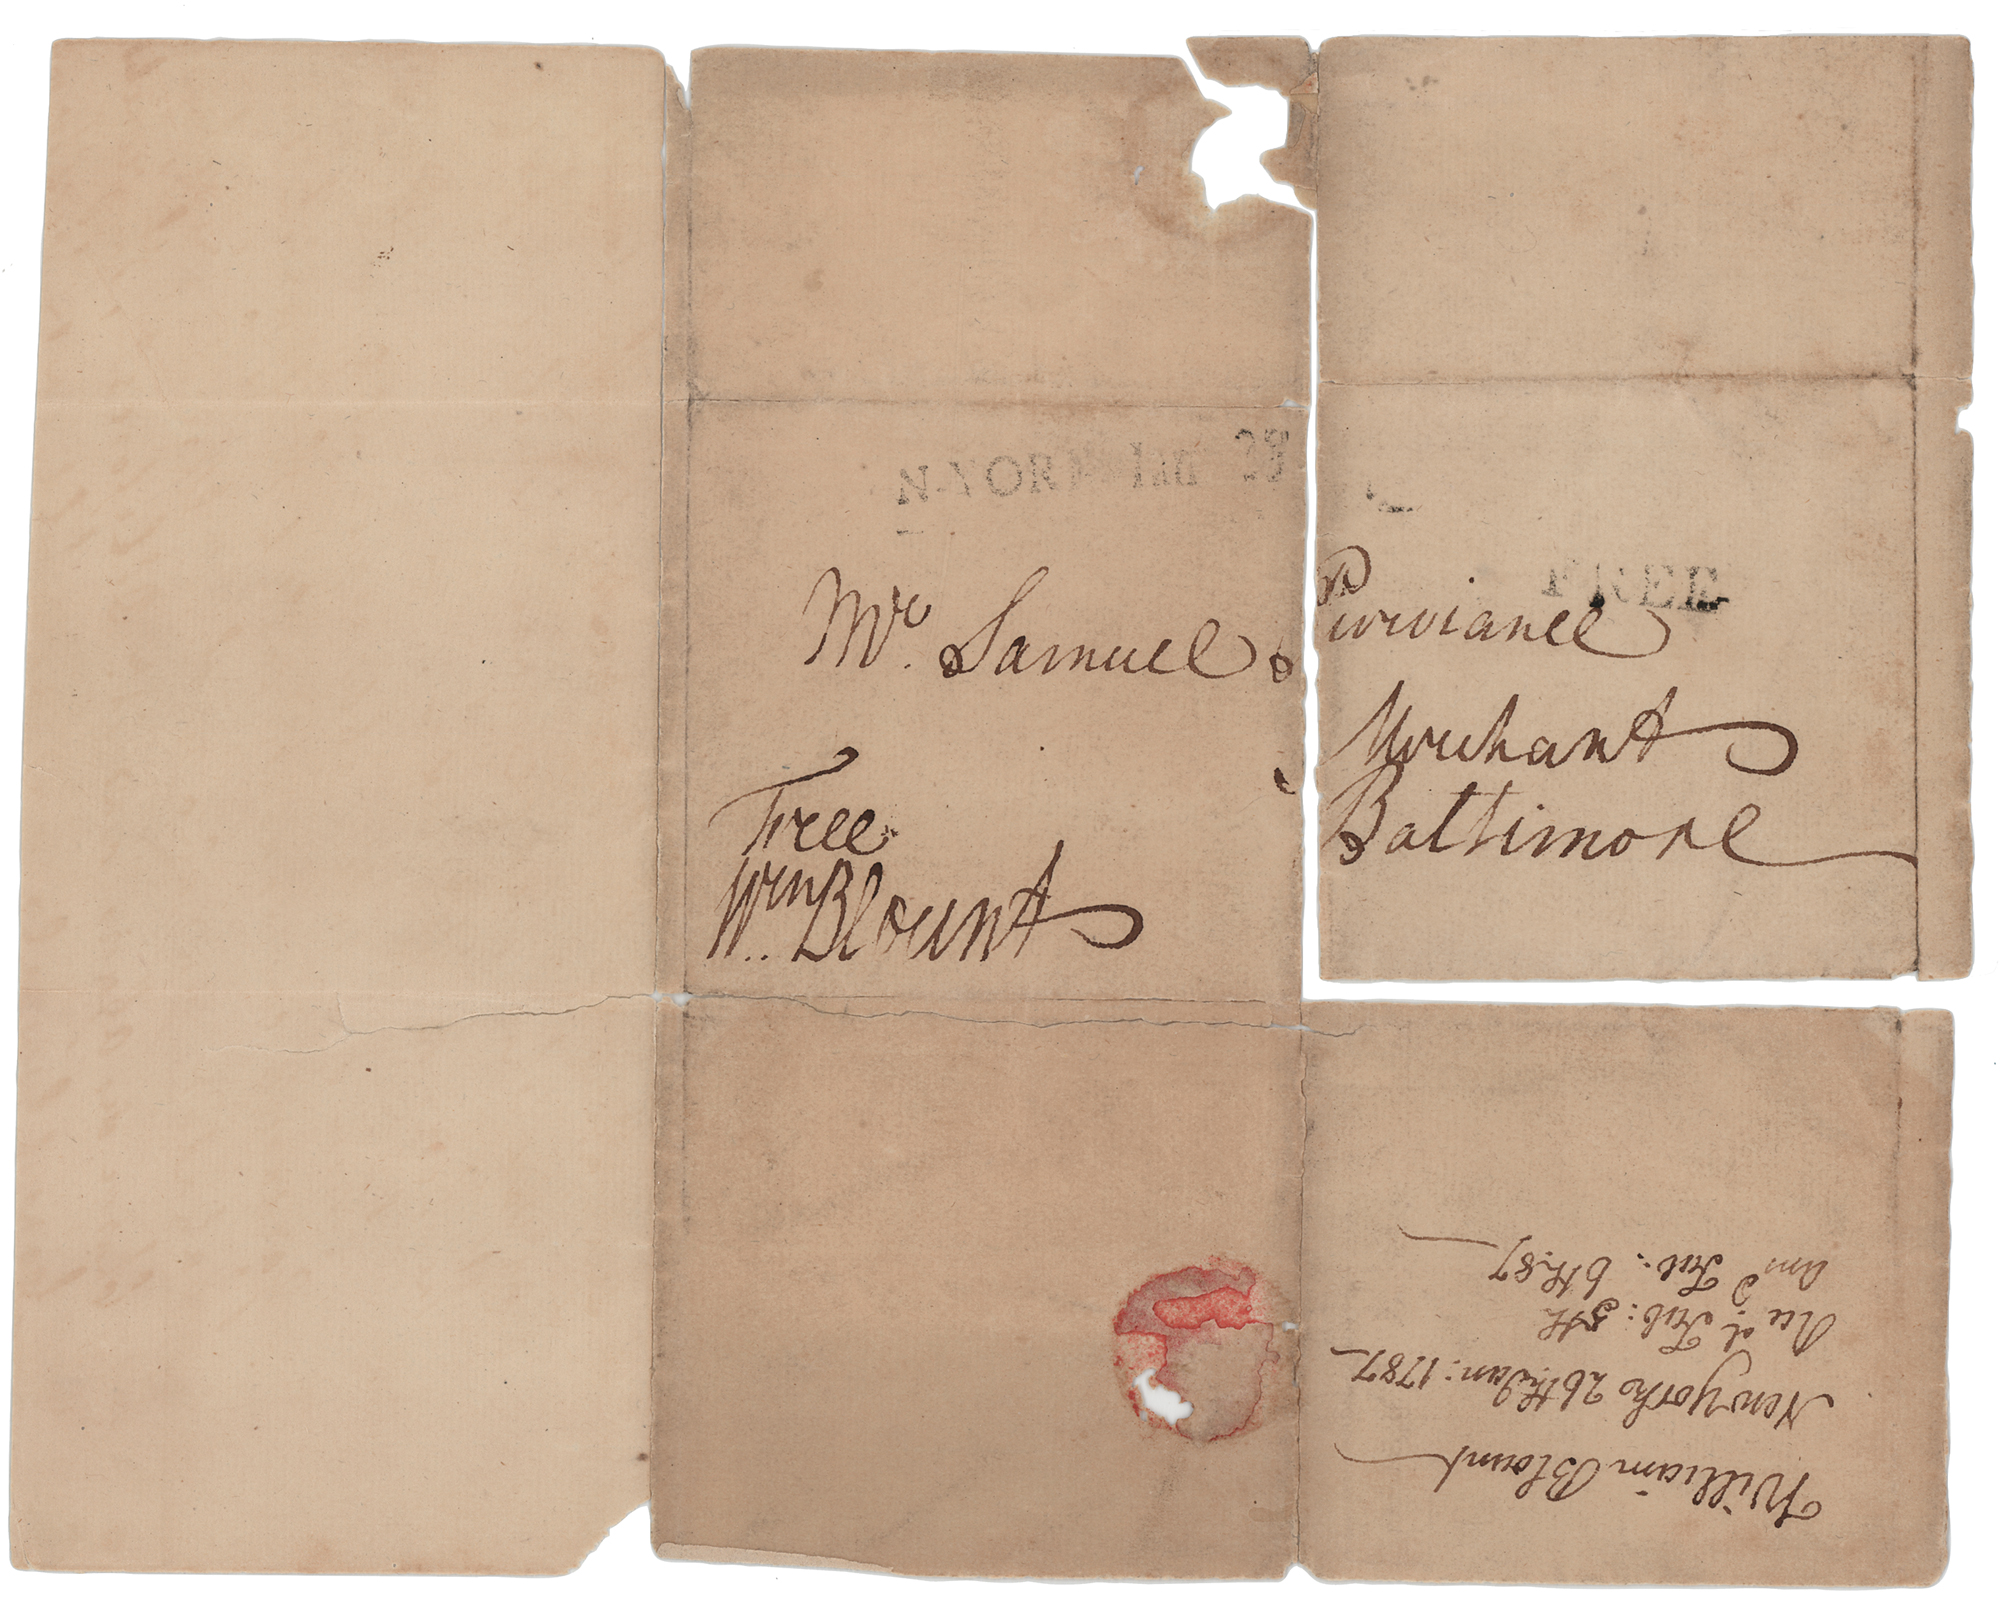 N-YORK Jan 28
FREE
Mr. Samuel Purviance
Merchant
Baltimore
Free
Wm. Blount
William Blount
New York 26th Jan: 1787
Rec'd. Feb: 5th
Ansd Feb: 6th: 87